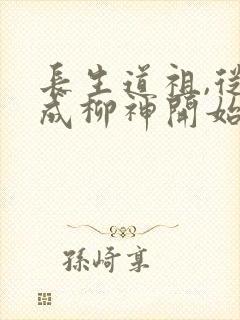 長生道祖,從
成柳神開始
孫崎稟